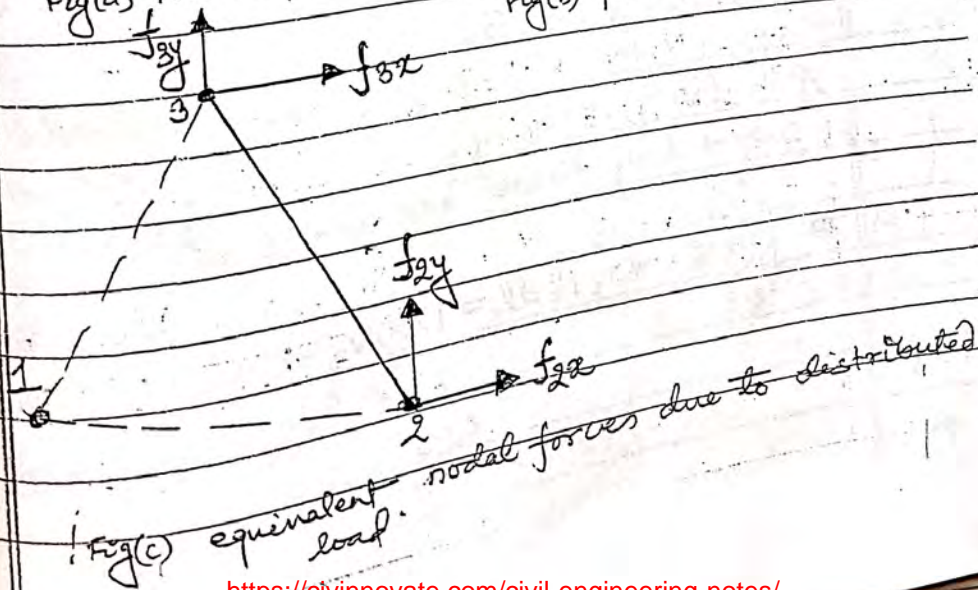 Fig(a)
Fig(b)
f3y
f3x
3
f2y
f2x
1
2
Fig(c) equivalent nodal forces due to distributed
load.
https://civinnovate.com/civil-engineering-notes/